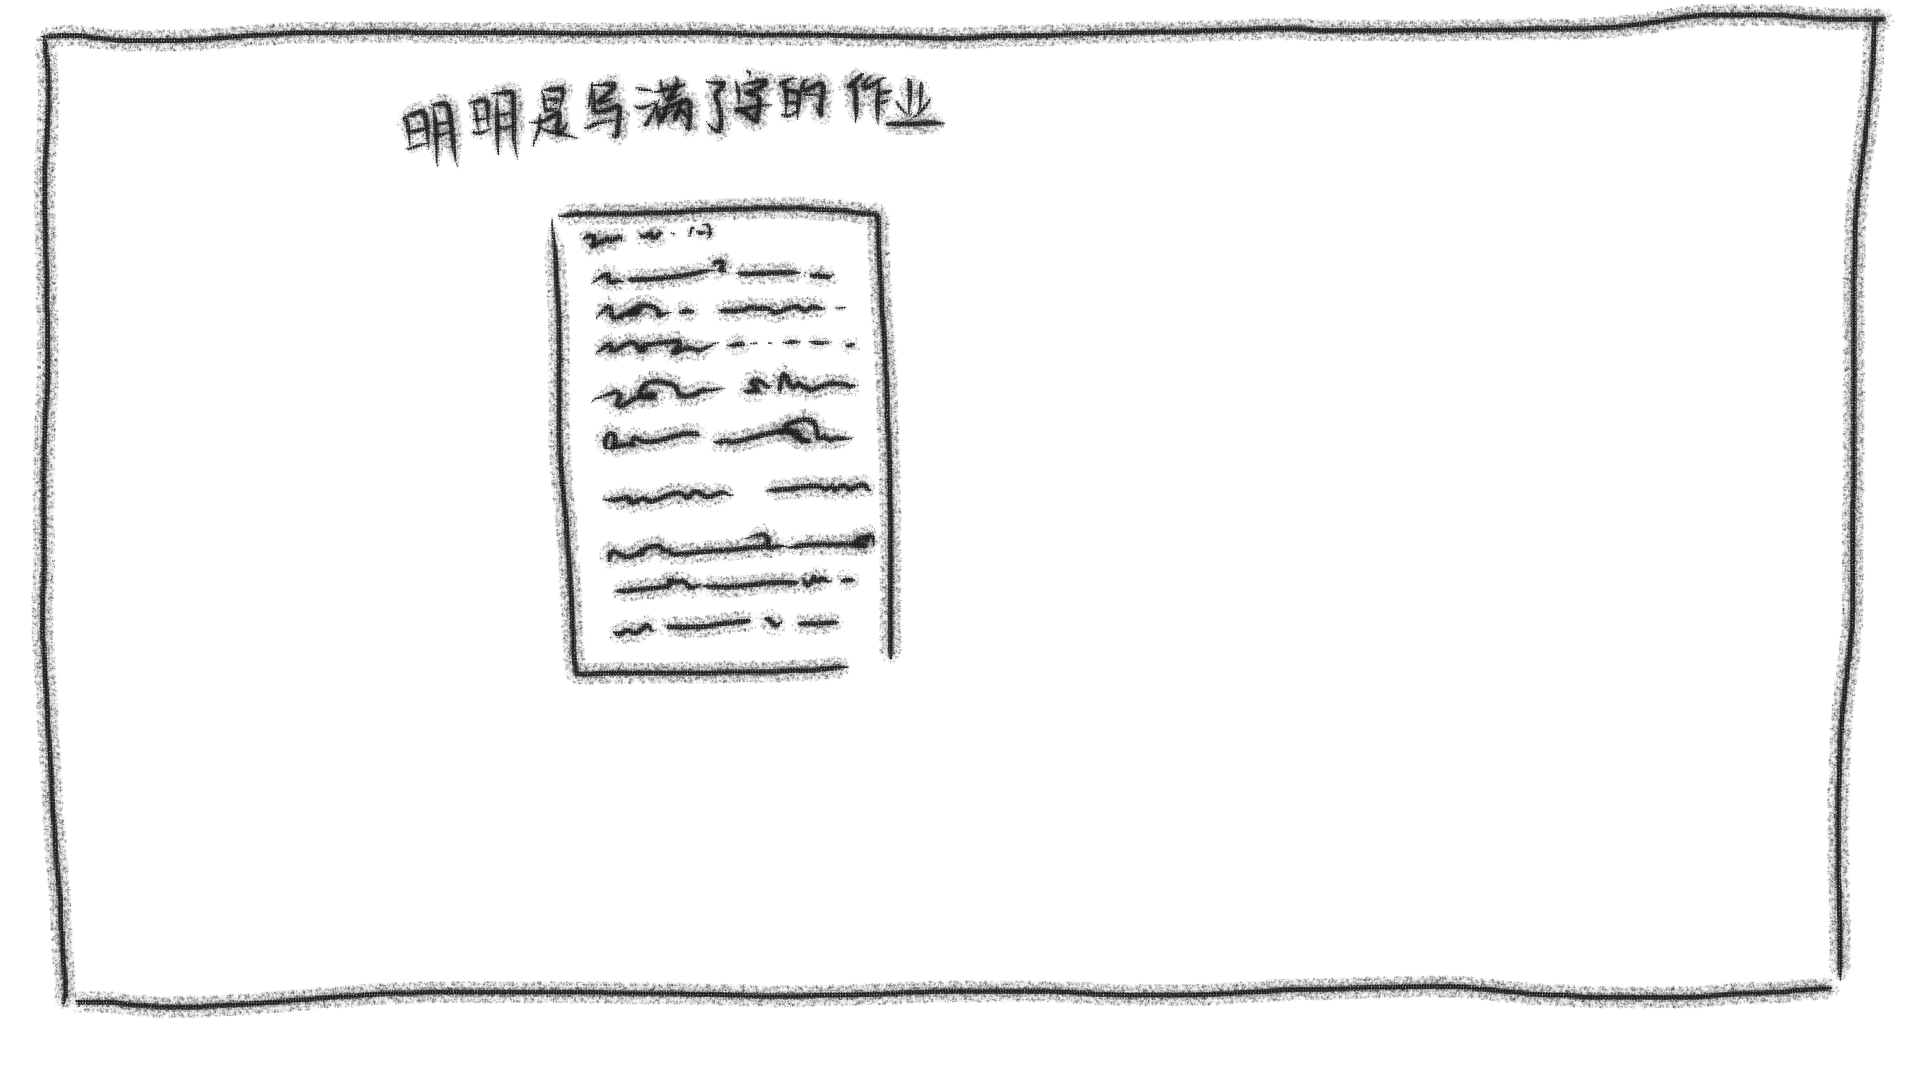 明明是写满了字的作业